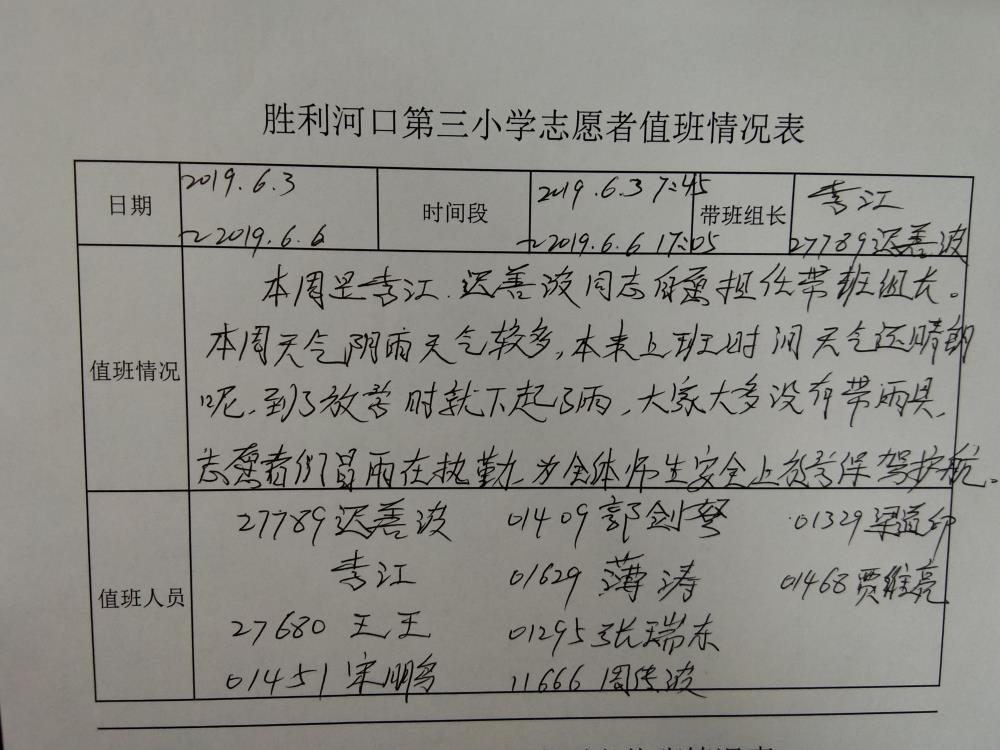 胜利河口第三小学志愿者值班情况表
日期 2019.6.3 ~2019.6.6 时间段 2019.6.3 7:45 ~2019.6.6 17:05 带班组长 李江 27789迟善波
值班情况
本周是李江、迟善波同志自愿担任带班组长。
本周天气阴雨天气较多,本来上班时间天气还晴朗
呢,到了放学时就下起了雨,大家大多没有带雨具,
志愿者们冒雨在执勤,为全体师生安全上放学保驾护航。
值班人员
27789 迟善波 01409 郭剑 01329 梁道
李江 01629 薄涛 01468 贾维亮
27680 王王 01295 张瑞东
01451 宋鹏 11666 周传波